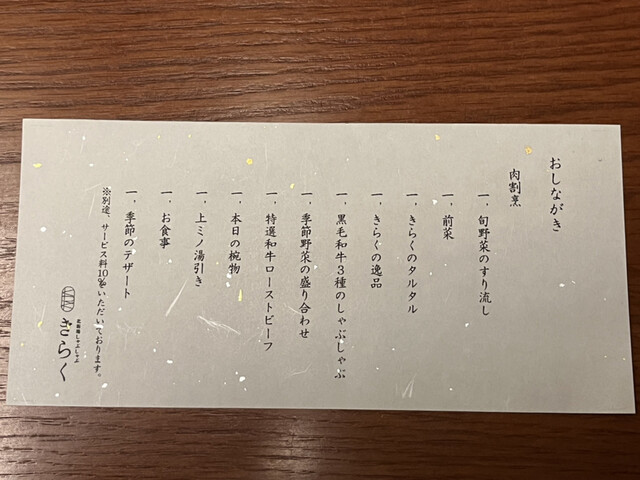 おしながき
肉割烹
一、旬野菜のすり流し
一、前菜
一、きらくのタルタル
一、きらくの逸品
一、黒毛和牛3種のしゃぶしゃぶ
一、季節野菜の盛り合わせ
一、特選和牛ローストビーフ
一、本日の椀物
一、上ミノ湯引き
一、お食事
一、季節のデザート
※別途、サービス料10%をいただいております。
北新地しゃぶしゃぶ
きらく